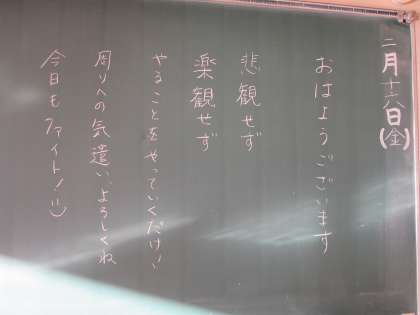 二月十六日(金)
おはようございます
悲観せず
楽観せず
やることをやっていくだけ!
周りへの気遣い、よろしくね
今日もファイト!!